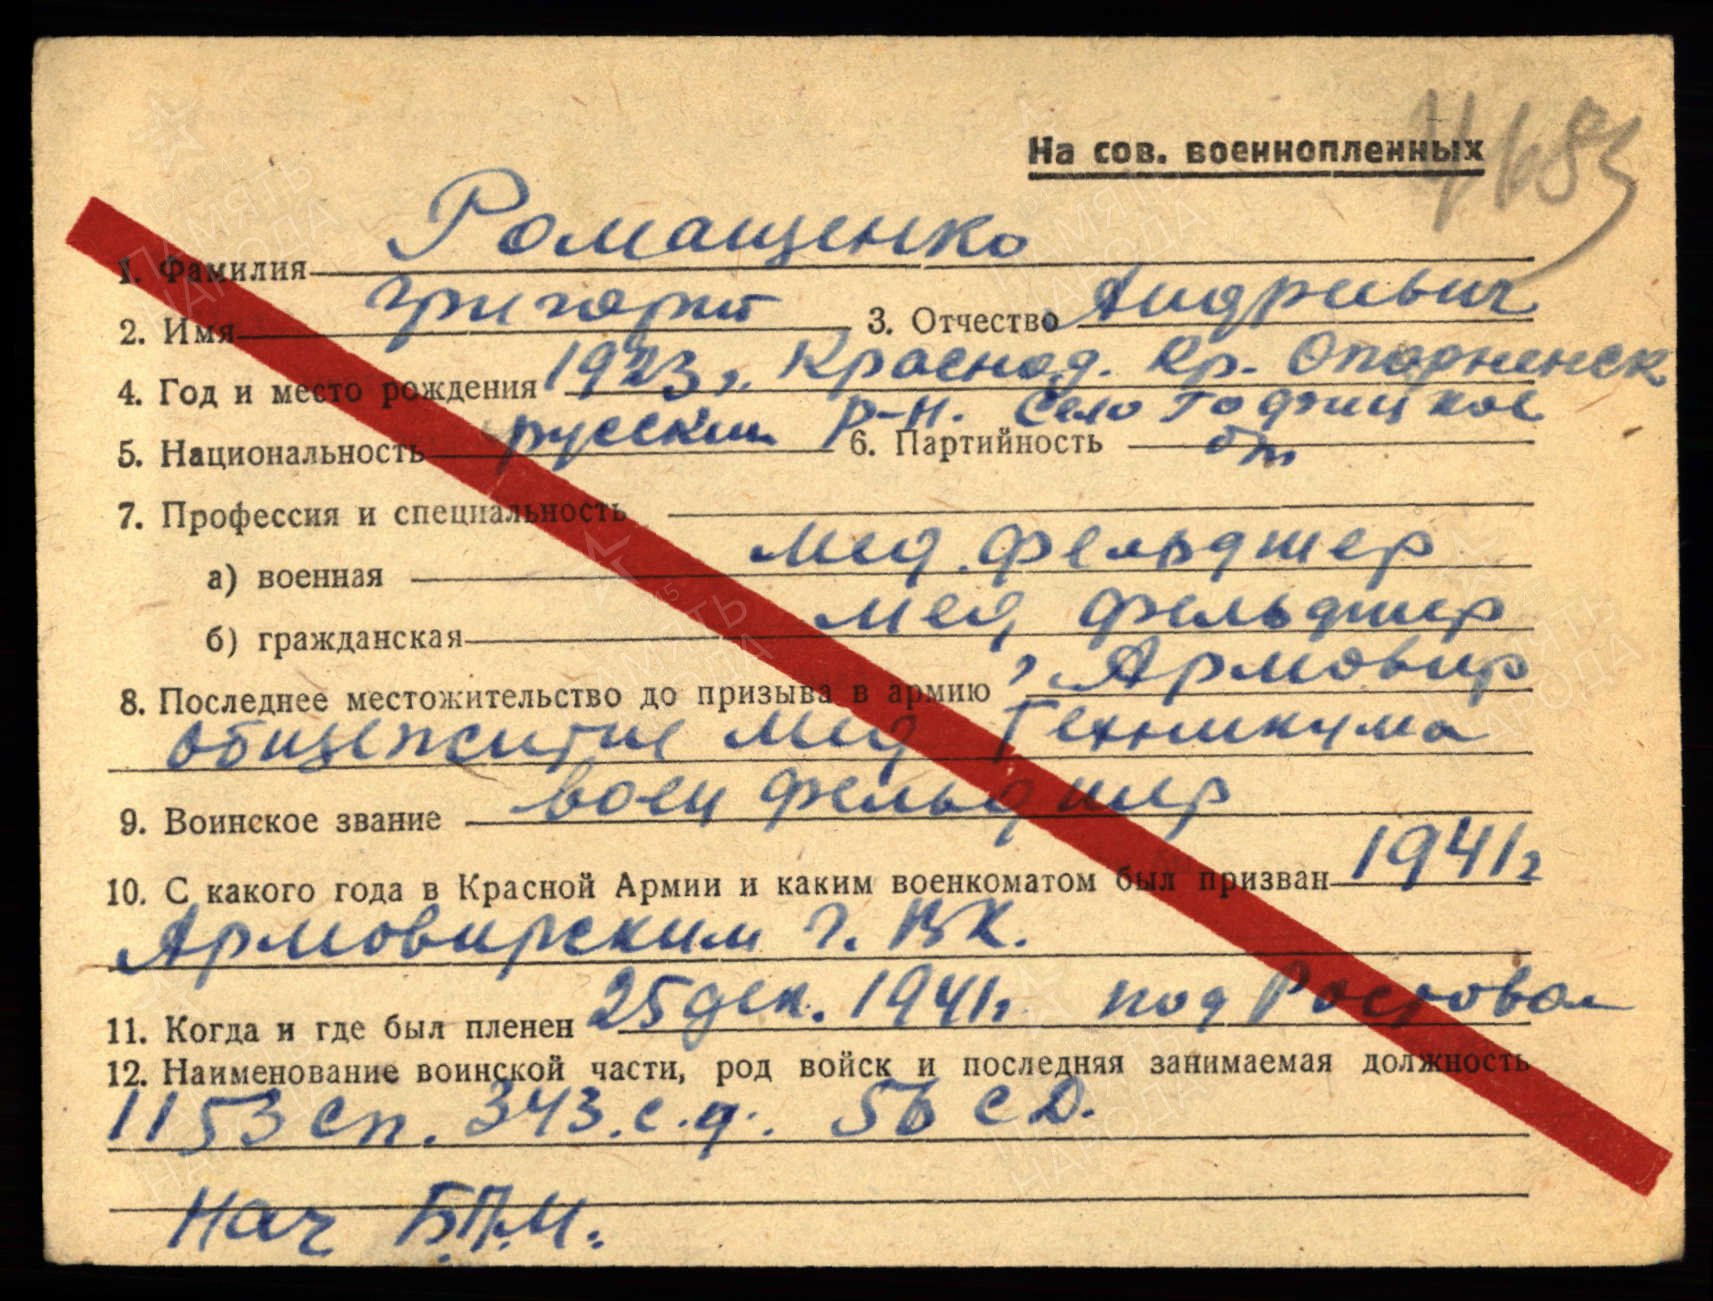 На сов. военнопленных
1. Фамилия Ромащенко
2. Имя Григорий 3. Отчество Андреевич
4. Год и место рождения 1923 г. Краснод. кр.
5. Национальность русский р-н. село 6. Партийность б/п
7. Профессия и специальность
а) военная мед. фельдшер
б) гражданская мед фельдшер
8. Последнее местожительство до призыва в армию г. Армовир
общежитие мед Техникума
9. Воинское звание воен фельдшер
10. С какого года в Красной Армии и каким военкоматом был призван 1941г
Армовирским г. ВК.
11. Когда и где был пленен 25 дек. 1941г. под Ростовом
12. Наименование воинской части, род войск и последняя занимаемая должность
1153 сп. 343. с.д. 56 с Д.
Нач Б.П.М.
ПАМЯТЬ
НАРОДА